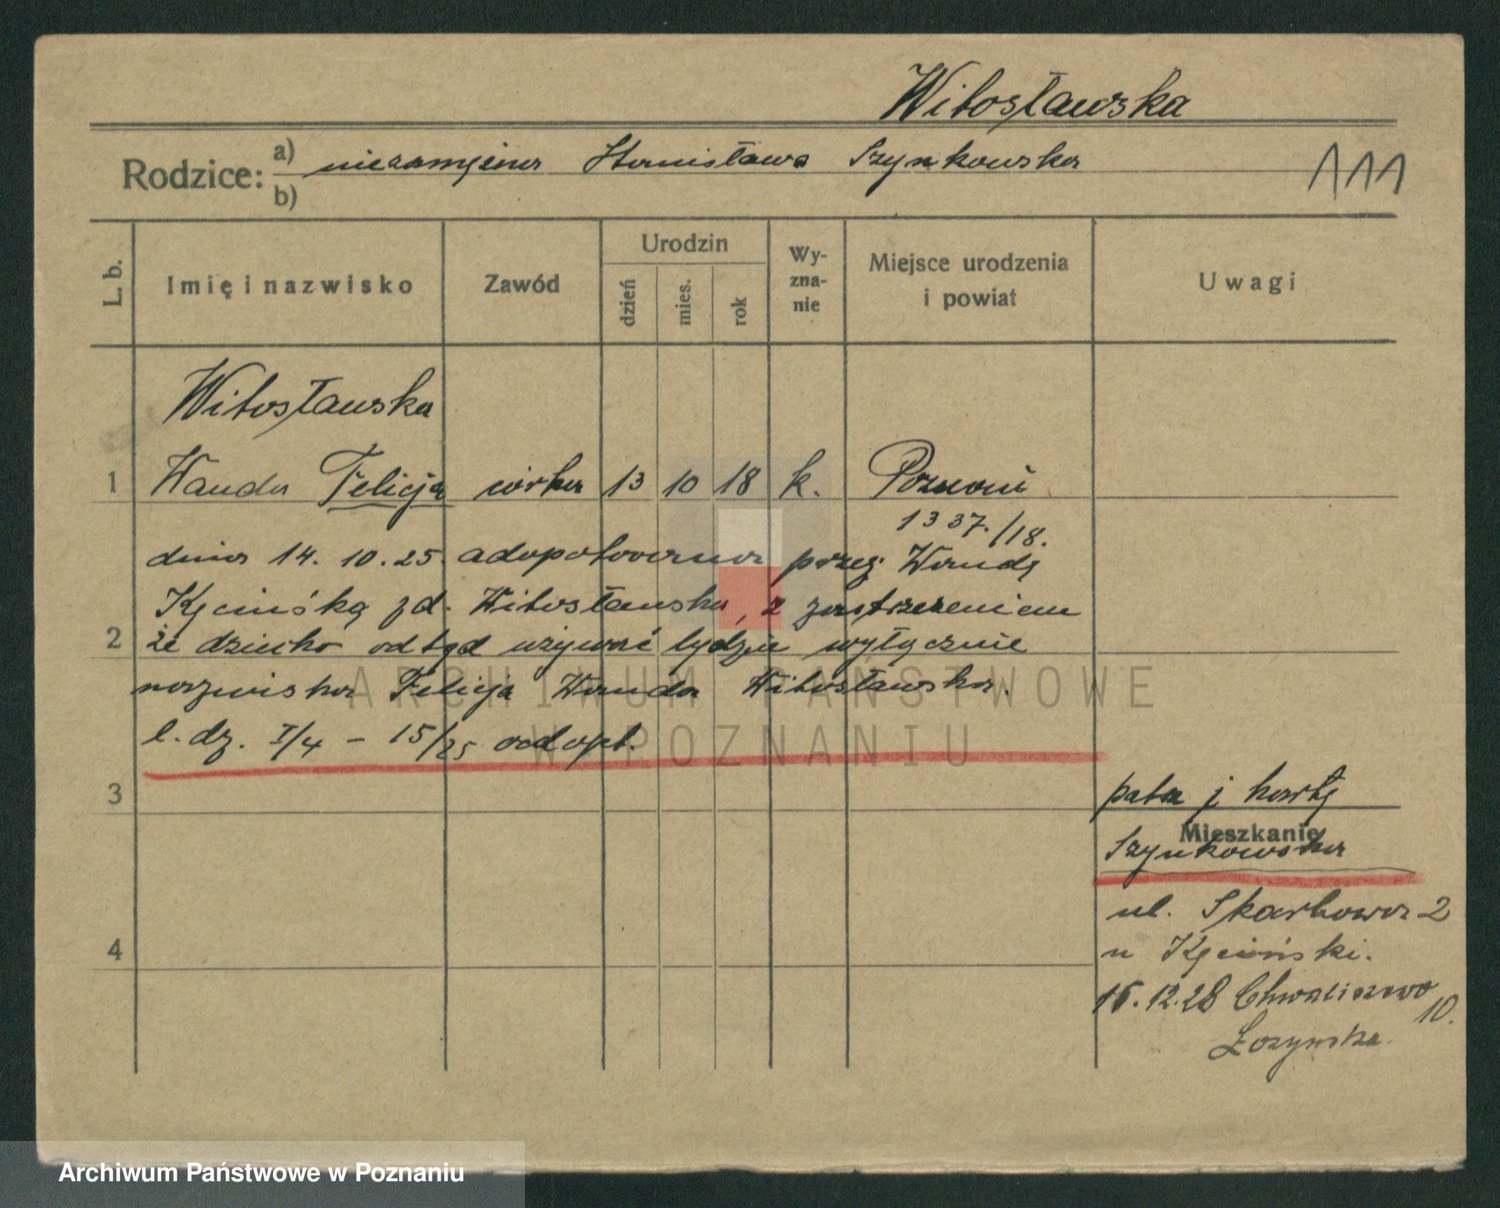 Witosławska
Rodzice: a) niezamężna Stanisława Szynkowska
b)
111
L. b.
Imię i nazwisko
Zawód
Urodzin
dzień
mies.
rok
Wy-
zna-
nie
Miejsce urodzenia
i powiat
Uwagi
Witosławska
1 Wanda Felicja córka 13 10 18 k. Poznań
1337./18.
dnia 14. 10. 25. adoptowana przez Wandę
Kęcińską zd. Witosławska, z zastrzeżeniem
2 że dziecko odtąd używać będzie wyłącznie
nazwiska Felicja Wanda Witosławska.
l. dz. I/4 - 15/25 adopt.
3
patrz j kartę
Mieszkanie
Szynkowska
ul. Skarbowa 2
4
u Kęciński.
15.12.28 Chwaliszewo
10.
Łozyńska.
ARCHIWUM PAŃSTWOWE
W POZNANIU
Archiwum Państwowe w Poznaniu